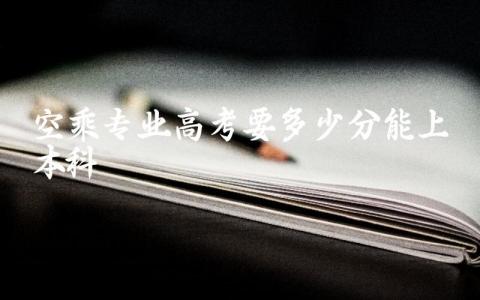 空乘专业高考要多少分能上
本科